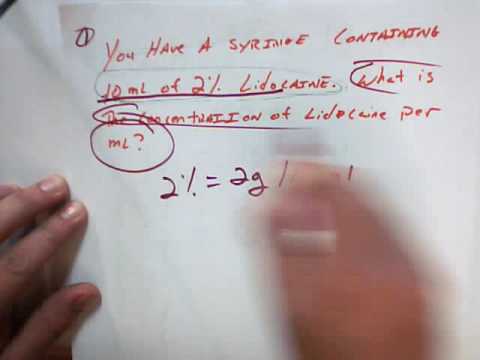 ① You Have A syringe containing
10 mL of 2% Lidocaine. What is
The concentration of Lidocaine per
mL?
2% = 2g /